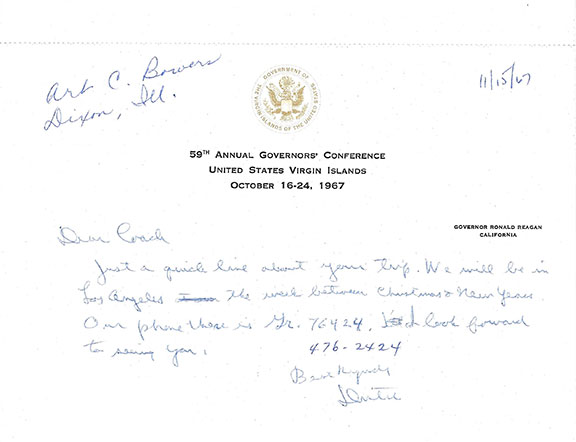 Art C. Bowers
Dixon, Ill.
11/15/67
GOVERNMENT OF THE VIRGIN ISLANDS OF THE UNITED STATES
59TH ANNUAL GOVERNORS' CONFERENCE
UNITED STATES VIRGIN ISLANDS
OCTOBER 16-24, 1967
GOVERNOR RONALD REAGAN
CALIFORNIA
Dear Coach
Just a quick line about your trip. We will be in
Los Angeles the week between Christmas & New Years.
Our phone there is Gr. 76424, look forward
to seeing you.
476-2424
Best Regards
Dutch